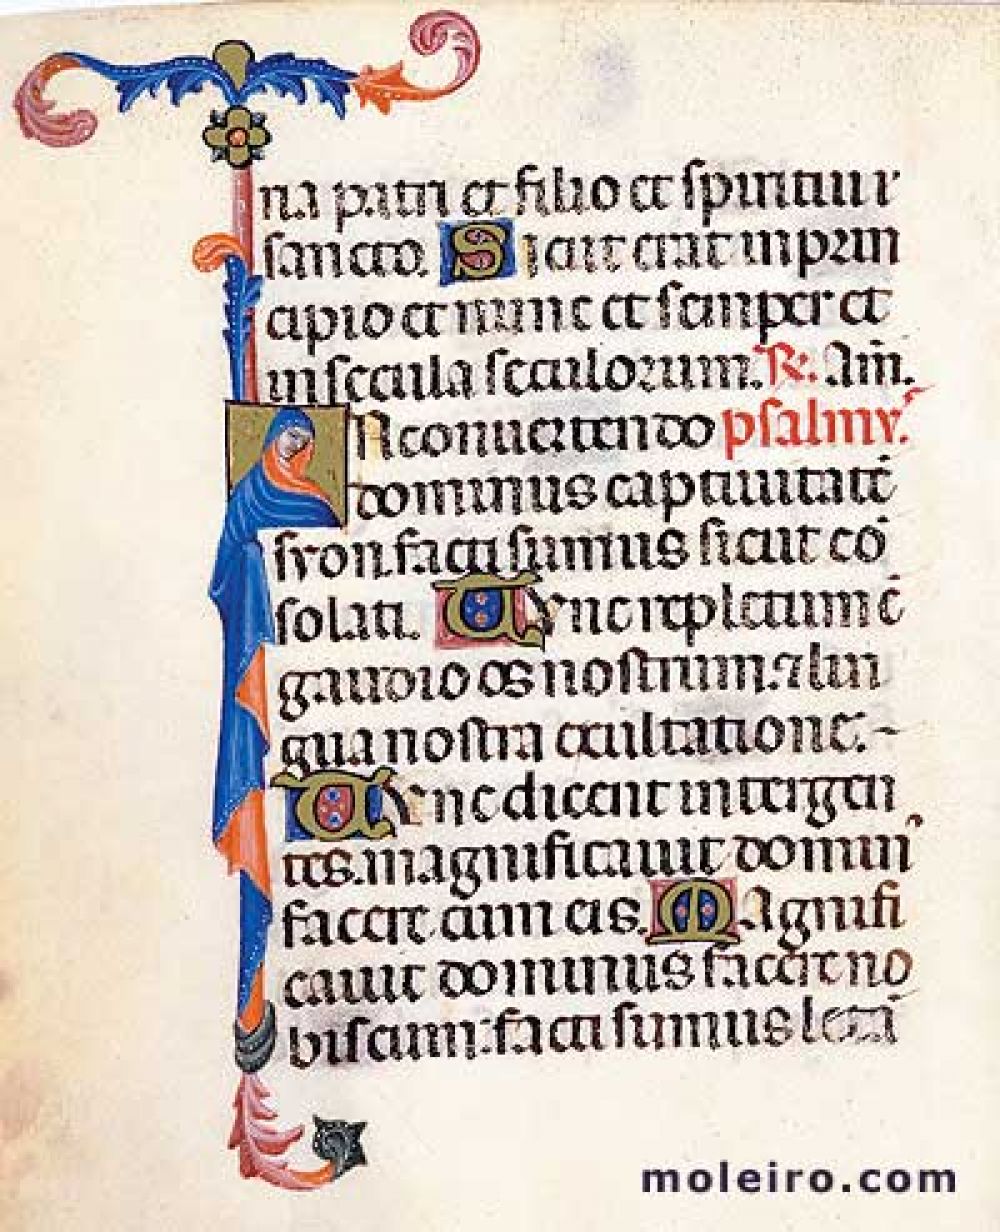 na patri et filio et spiritui r
sancto. Sicut erat in prin
cipio et nunc et semper et
in secula seculorum. R: Am̄.
N conuertendo psalmv.
dominus captiuitatē
svon. facti sumus sicut cō
solati. Tvnc repletum ē
gaudio os nostrum. ⁊ lin
gua nostra exultatione.~
Tvnc dicent inter gen
tes. magnificauit domin'
facere cum eis. Magnifi
cauit dominus facere no
biscum: facti sumus letā
moleiro.com